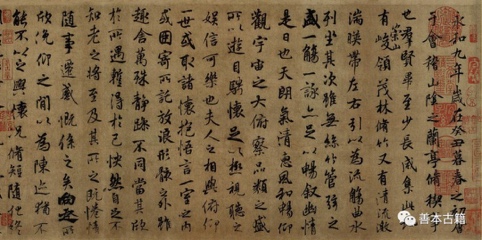 永和九年歲在癸丑暮春之初會
于會稽山陰之蘭亭脩禊事
也群賢畢至少長咸集此地
有崇山峻領茂林脩竹又有清流激
湍暎帶左右引以為流觴曲水
列坐其次雖無絲竹管弦之
盛一觴一詠亦足以暢敘幽情
是日也天朗氣清惠風和暢仰
觀宇宙之大俯察品類之盛
所以遊目騁懷足以極視聽之
娛信可樂也夫人之相與俯仰
一世或取諸懷抱悟言一室之內
或因寄所託放浪形骸之外雖
趣舍萬殊靜躁不同當其欣
於所遇暫得於己快然自足不
知老之將至及其所之既惓情
隨事遷感慨係之矣向之所
欣俛仰之閒以為陳迹猶不
能不以之興懷況脩短隨化終
善本古籍